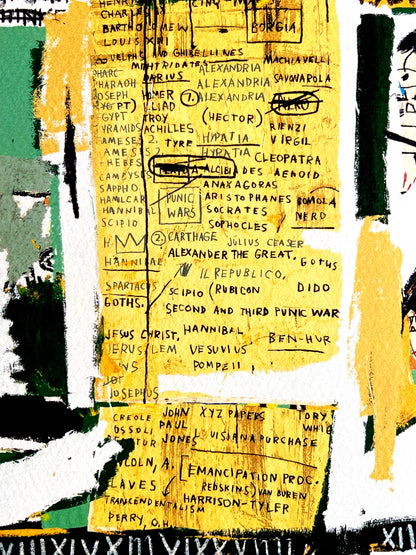 HENRY
CINQ-M
CHARL
BARTHOLOMEW
BORGIA
LOUIS XIII
GUELPHS AND GHIBELLINES
MACHIAVELLI
MITHRIDATES
ALEXANDRIA
HARC
DARIUS
ALEXANDRIA
SAVONAROLA
HARAOH
OSEPH
HOMER
1. ALEXANDRIA
NERO
YGYPT)
ILIAD
GYPT
TROY
(HECTOR)
RIENZI
YRAMIDS
ACHILLES
VIRGIL
AMESES
2. TYRE
HYPATIA
AMES
2.
HYPATIA
CLEOPATRA
HEBES
ALCIBIADES
AENOID
CAMBYSES
ANAXAGORAS
SAPPHO
PUNIC WARS
ARISTOPHANES
ROMOLA
HAMLCAR
SOCRATES
NERO
HANNIBAL
SOPHOCLES
SCIPIO
H
2. CARTHAGE
JULIUS CEASER
HANNIBAL
ALEXANDER THE GREAT,
GOTHS
IL REPUBLICO,
SPARTACUS
SCIPIO (RUBICON
DIDO
GOTHS.
SECOND AND THIRD PUNIC WAR
JESUS CHRIST,
HANNIBAL
BEN-HUR
JERUSLEM
VESUVIUS
POMPEII
JOSEPHUS
CREOLE
JOHN
XYZ PAPERS
TORY
OSSOLI
PAUL
WHIG
TUR
JONES
LOUISIANA PURCHASE
COLN, A.
[EMANCIPATION PROC.
LAVES
REDSKINS) VAN BUREN
TRANCENDENTALISM
HARRISON-TYLER
PERRY, O.H.